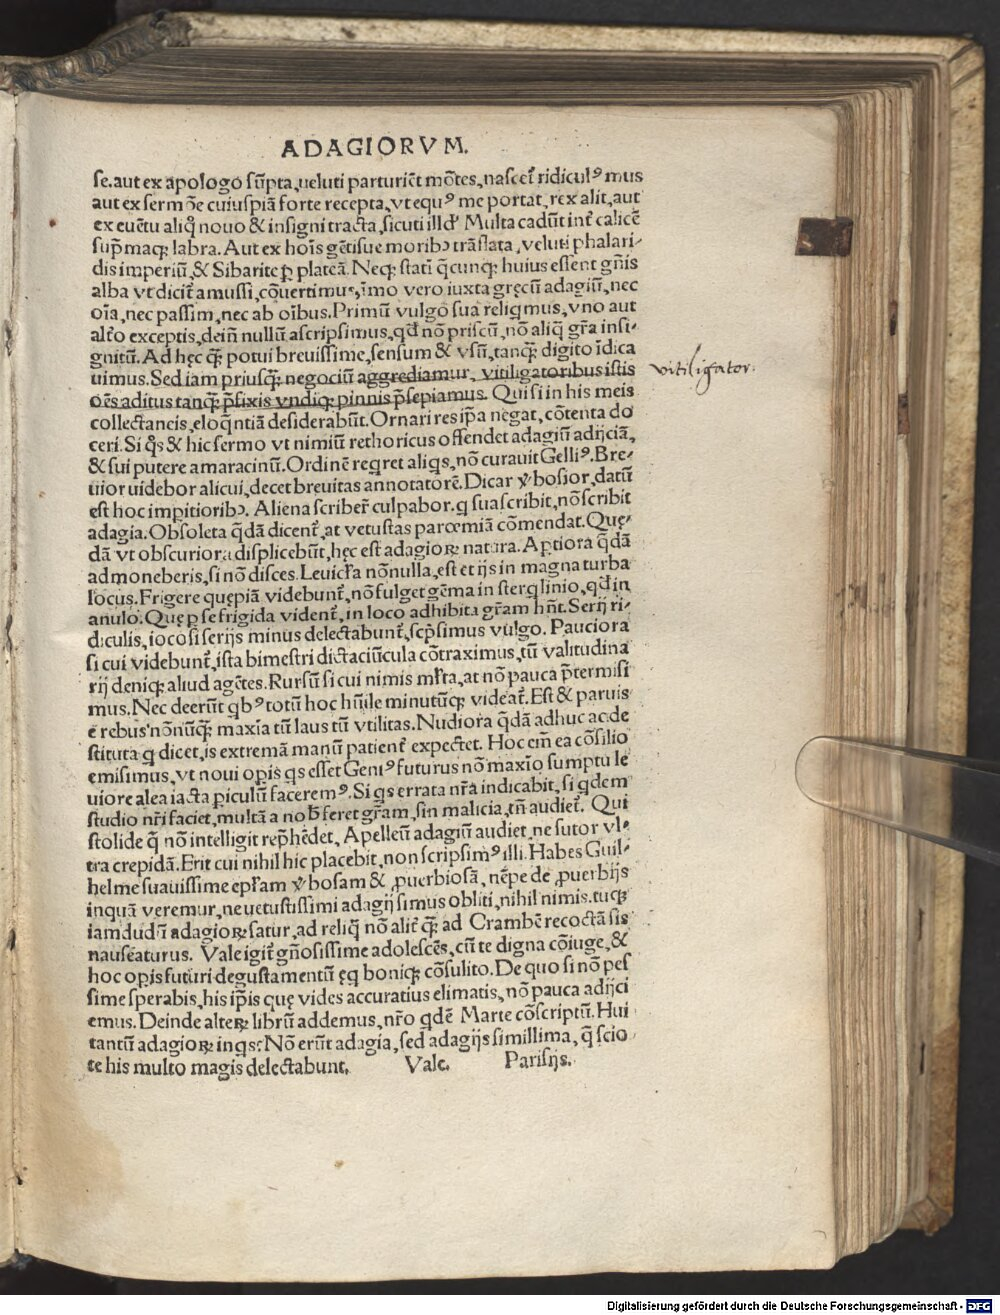 ADAGIORVM.
se. aut ex apologo sūpta, ueluti parturiēt mōtes, nascet᷑ ridiculꝰ mus
aut ex sermōe cuiuspiā forte recepta, vt equꝰ me portat, rex alit, aut
ex euētu aliq̄ nouo & insigni tracta, sicuti illđ Multa cadūt int᷑ calicē
sup̄maqꝫ labra. Aut ex hoīs gētisue moribꝫ trāslata, veluti phalari⸗
dis imperiū, & Sibarite ꝑ plateā. Neqꝫ statī q̄cunqꝫ huius essent gn̄is
alba vt dicit᷑ amussi, cōuertimus, īmo vero iuxta gręcū adagiū, nec
oīa, nec passim, nec ab oībus. Primū vulgo sua reliqmus, vno aut
alt᷑o exceptis, dein̄ nullū ascripsimus, qđ nō priscū, nō aliq̄ gr̄a insi⸗
gnitū. Ad hęc q̄ꝫ potui breuissime, sensum & vsū, tanqꝫ digito īdica
uimus. Sed iam priusq̄ꝫ negociū aggrediamur, vitiligatoribus istis
vitiligator.
oēs aditus tanq̄ꝫ p̄fixis vndiqꝫ pinnis p̄sepiamus. Qui si in his meis
collectaneis, eloq̄ntiā desiderabūt. Ornari res ip̄a negat, cōtenta do
ceri. Si q̄s & hic sermo vt nimiū rethoricus offendet adagiū adijciā,
& sui putere amaracinū. Ordinē reqret aliqs, nō curauit Gelliꝰ. Bre⸗
uior uidebor alicui, decet breuitas annotatorē. Dicar v̾bosior, datū
est hoc imp̄itioribꝫ. Aliena scriber᷑ culpabor. q sua scribit, nō scribit
adagia. Obsoleta q̄dā dicent᷑, at vetustas parœmiā cōmendat. Quę⸗
dā vt obscuriora displicebūt, hęc est adagioꝝ natura. Aptiora q̄dā
admoneberis, si nō disces. Leuicl̄a nōnulla, est et ijs in magna turba
locus. Frigere quępiā videbunt᷑, nō fulget gēma in sterqlinio, qđ in
anulo. Quę ꝑ se frigida vident᷑, in loco adhibita gr̄am hn̄t. Serij ri⸗
diculis, iocosi serijs minus delectabunt᷑, scp̄simus vulgo. Pauciora
si cui videbunt᷑, ista bimestri dictaciūcula cōtraximus, tū valitudina
rij deniqꝫ aliud agētes. Rursū si cui nimis ml̄ta, at nō pauca p̄termisi
mus. Nec deerūt qbꝰ totū hoc hūile minutūqꝫ videat᷑. Est & paruis
ē rebus nōnūq̄ꝫ maxīa tū laus tū vtilitas. Nudiora q̄dā adhuc ac de
stituta q dicet, is extremā manū patient᷑ expectet. Hoc em̄ ea cōsilio
emisimus, vt noui opis qs esset Geniꝰ futurus nō maxīo sumptu le
uiore alea iacta ꝑiculū faceremꝰ. Si qs errata nr̄a indicabit, si qdem
studio nr̄i faciet, multā a nob̄ feret gr̄am, sin malicia, tn̄ audiet᷑. Qui
stolide q̄ nō intelligit rep̄hēdet, Apelleū adagiū audiet, ne sutor vl⸗
tra crepidā. Erit cui nihil hic placebit, non scripsimꝰ illi. Habes Guil⸗
helme suauissime epl̄am v̾bosam & ꝓuerbiosā, nēpe de ꝓuerbijs
inquā veremur, ne uetustissimi adagij simus obliti, nihil nimis. tuqꝫ
iamdudū adagioꝝ satur, ad reliq̄ nō alit᷑ q̄ꝫ ad Crambē recoctā sis
nauseaturus. Vale igit᷑ gn̄osissime adolescēs, cū te digna cōiuge, &
hoc opis futuri degustamentū ęq boniqꝫ cōsulito. De quo si nō pes
sime sperabis, his ip̄is quę vides accuratius elimatis, nō pauca adijci
emus. Deinde alteꝝ librū addemus, nr̄o qdē Marte cōscriptū. Hui
tantū adagioꝝ inqs? Nō erūt adagia, sed adagijs simillima, q̄ scio
te his multo magis delectabunt. Vale. Parisijs.
Digitalisierung gefördert durch die Deutsche Forschungsgemeinschaft - DFG